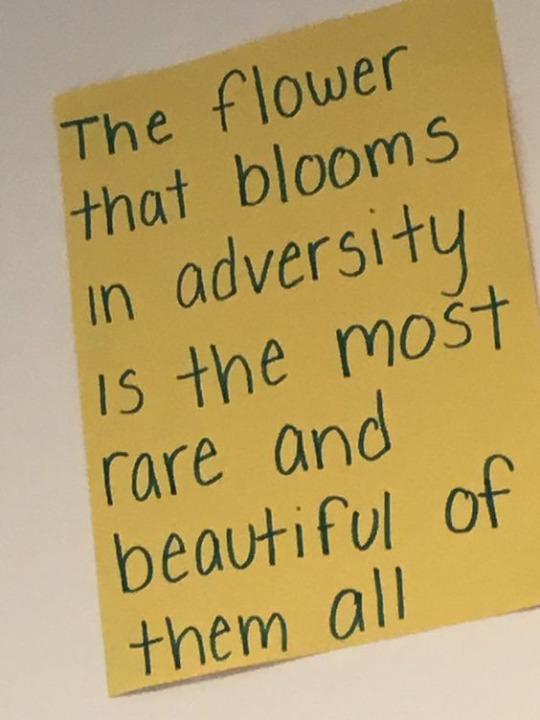 The flower
that blooms
in adversity
is the most
rare and
beautiful of
them all